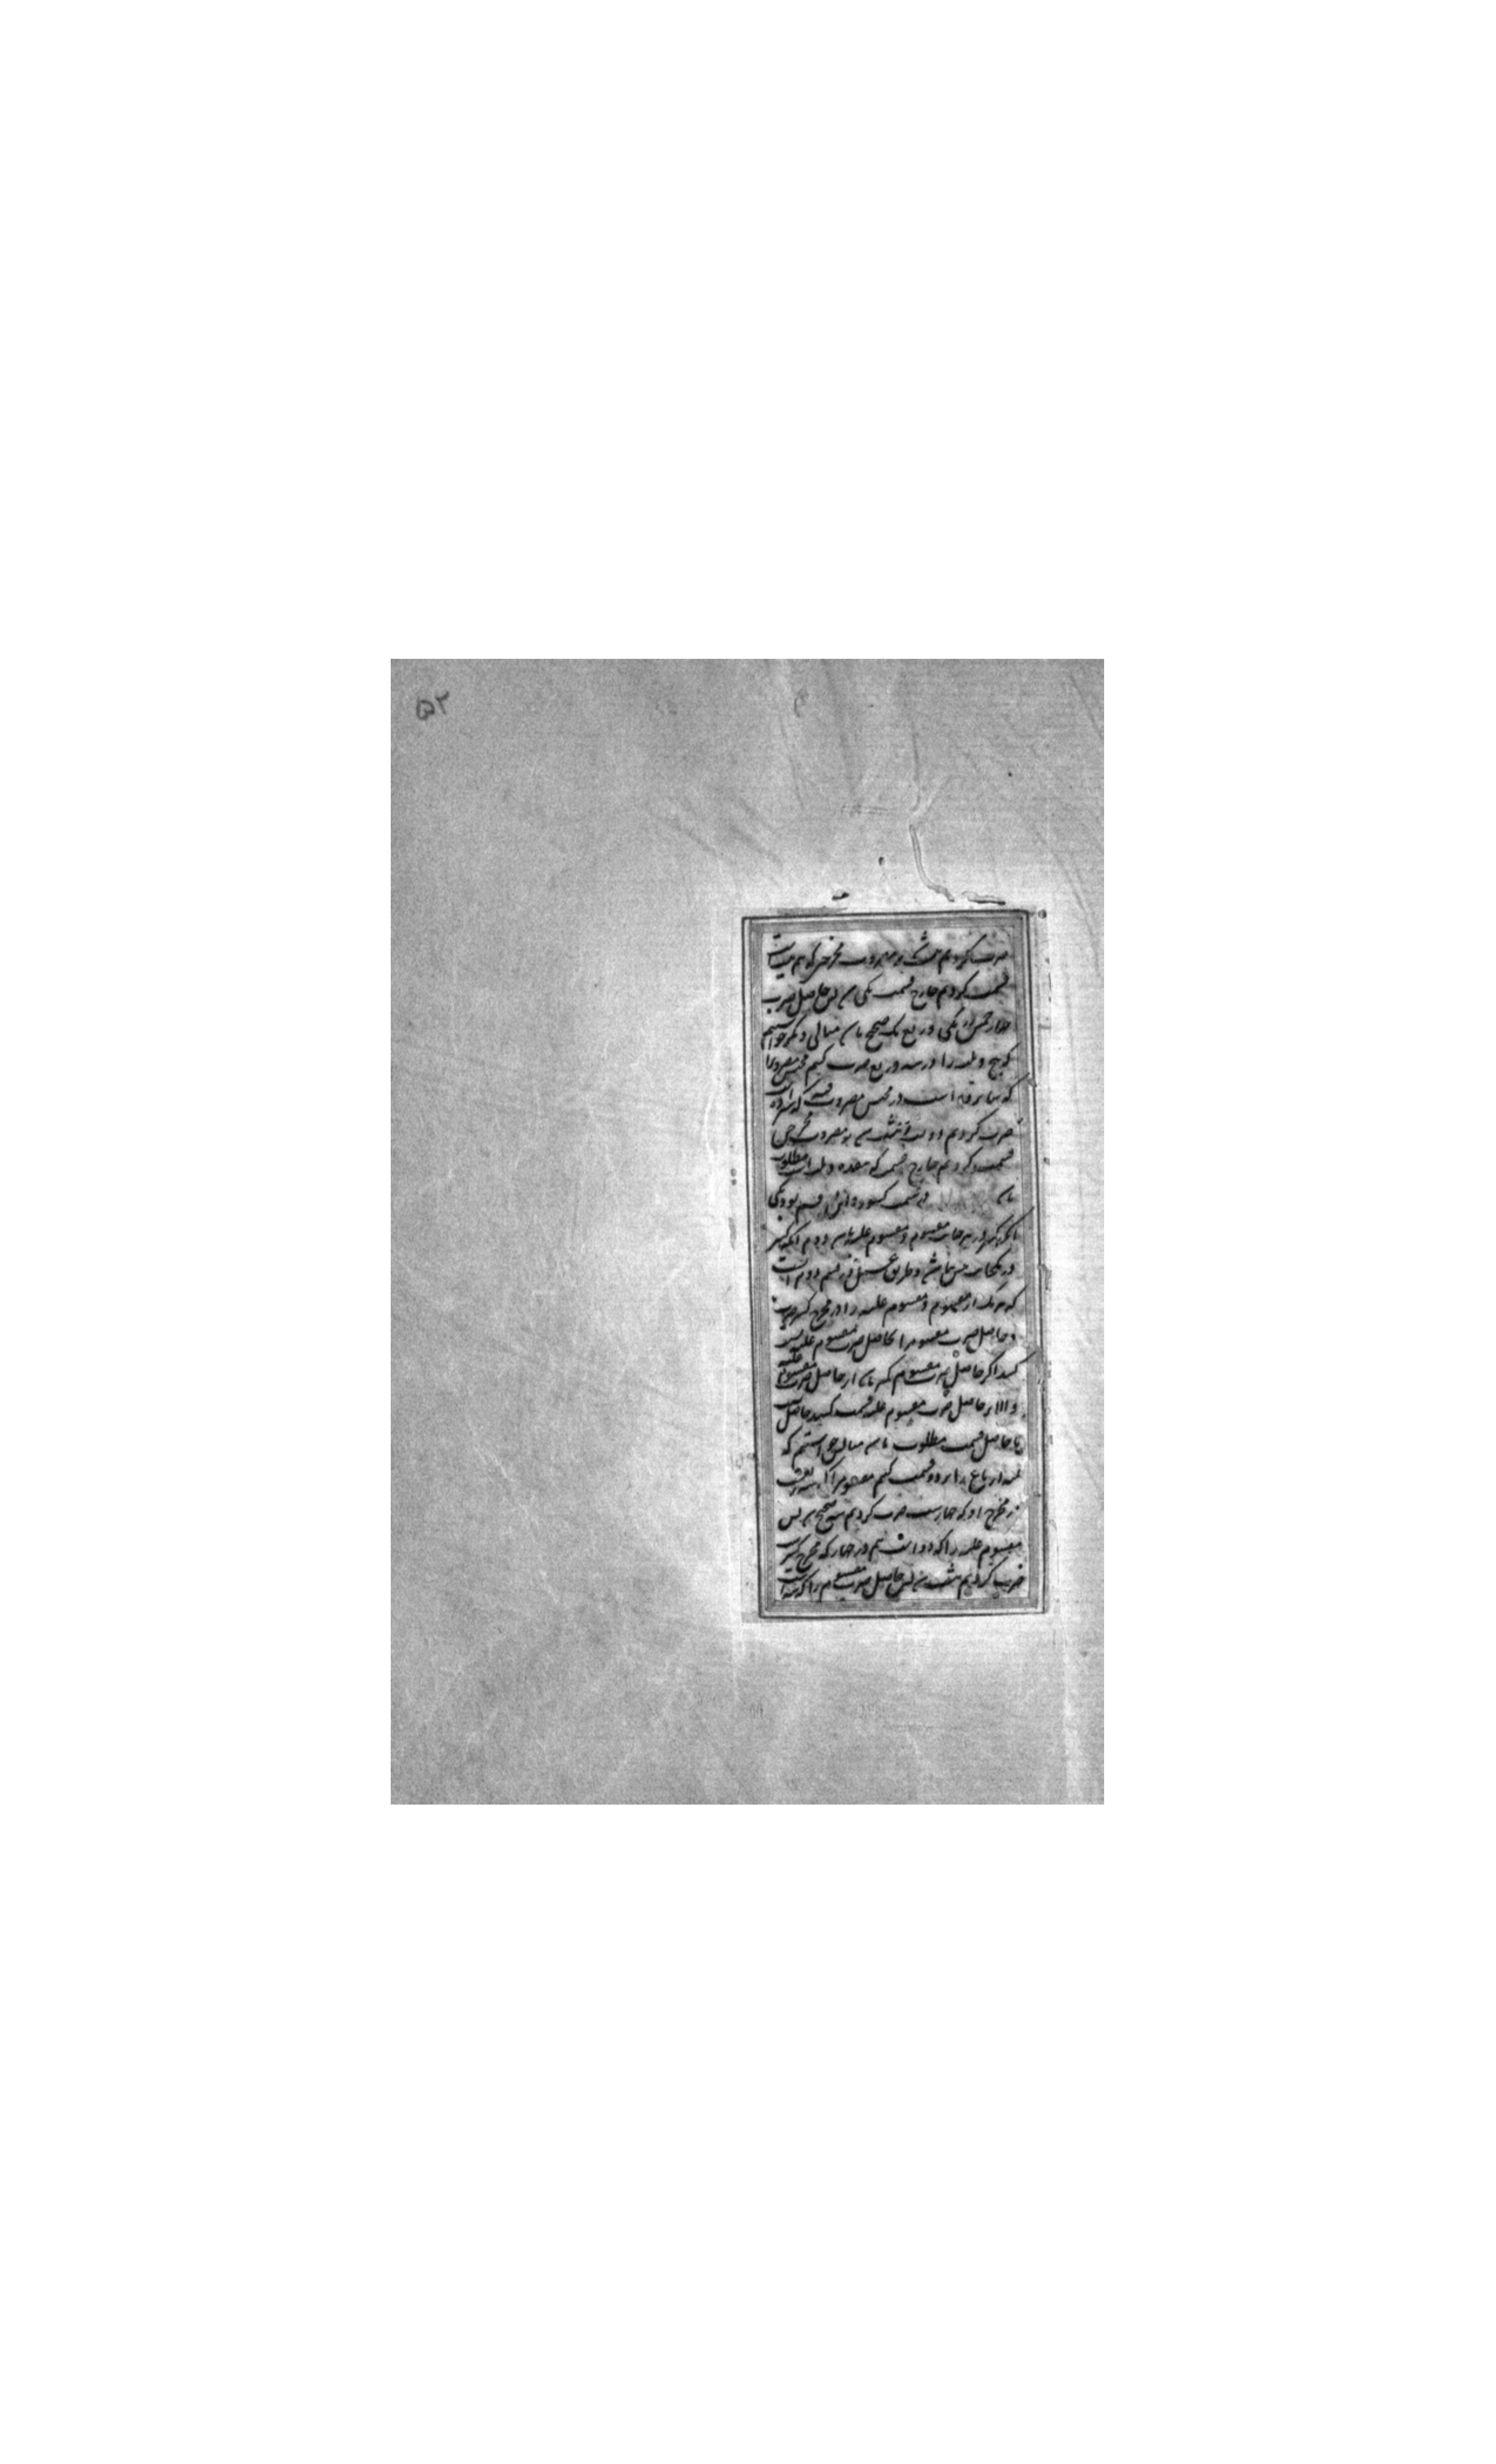 ۵۲
ضرب کردیم بر مضروب مخرجی که هم
قسمت کردیم خارج قسمت یکی پس حاصل ضرب
یکی و ربع یک صحیح باشد مثالی دیگر خواستیم
که پنج و ثلث را در سه و ربع ضرب کنیم مجنس مضروب را
که است در مجنس مضروب فیه که سیزده است
ضرب کردیم دویست و هشت شد بر مضروب مخرجین
قسمت کردیم خارج قسمت که هفده و ثلث است مطلوب
باشد در قسمت کسور و این بر قسم بود یکی
آنکه کسر در هر جانب مقسوم و مقسوم علیه باشد دوم آنکه کسر
در یکجانب بیش نباشد و طریق عمل در قسم دوم آنست
که هر یک از مقسوم و مقسوم علیه را در مخرج کسر ضرب
و حاصل ضرب مقسوم را با حاصل ضرب مقسوم علیه نسبت
کنید اگر حاصل ضرب مقسوم کمتر باشد از حاصل ضرب مقسوم علیه
والا بر حاصل ضرب مقسوم علیه قسمت کنید حاصل نسبت
یا حاصل قسمت مطلوب باشد مثالش خواستیم که
سه ارباع را بر دو قسمت کنیم مقسوم را که سه ربعست
در مخرج او که چهارست ضرب کردیم سه صحیح شد پس
مقسوم علیه را که دو است هم در چهار که مخرج کسرست
ضرب کردیم هشت شد پس حاصل ضرب مقسوم را که سه است